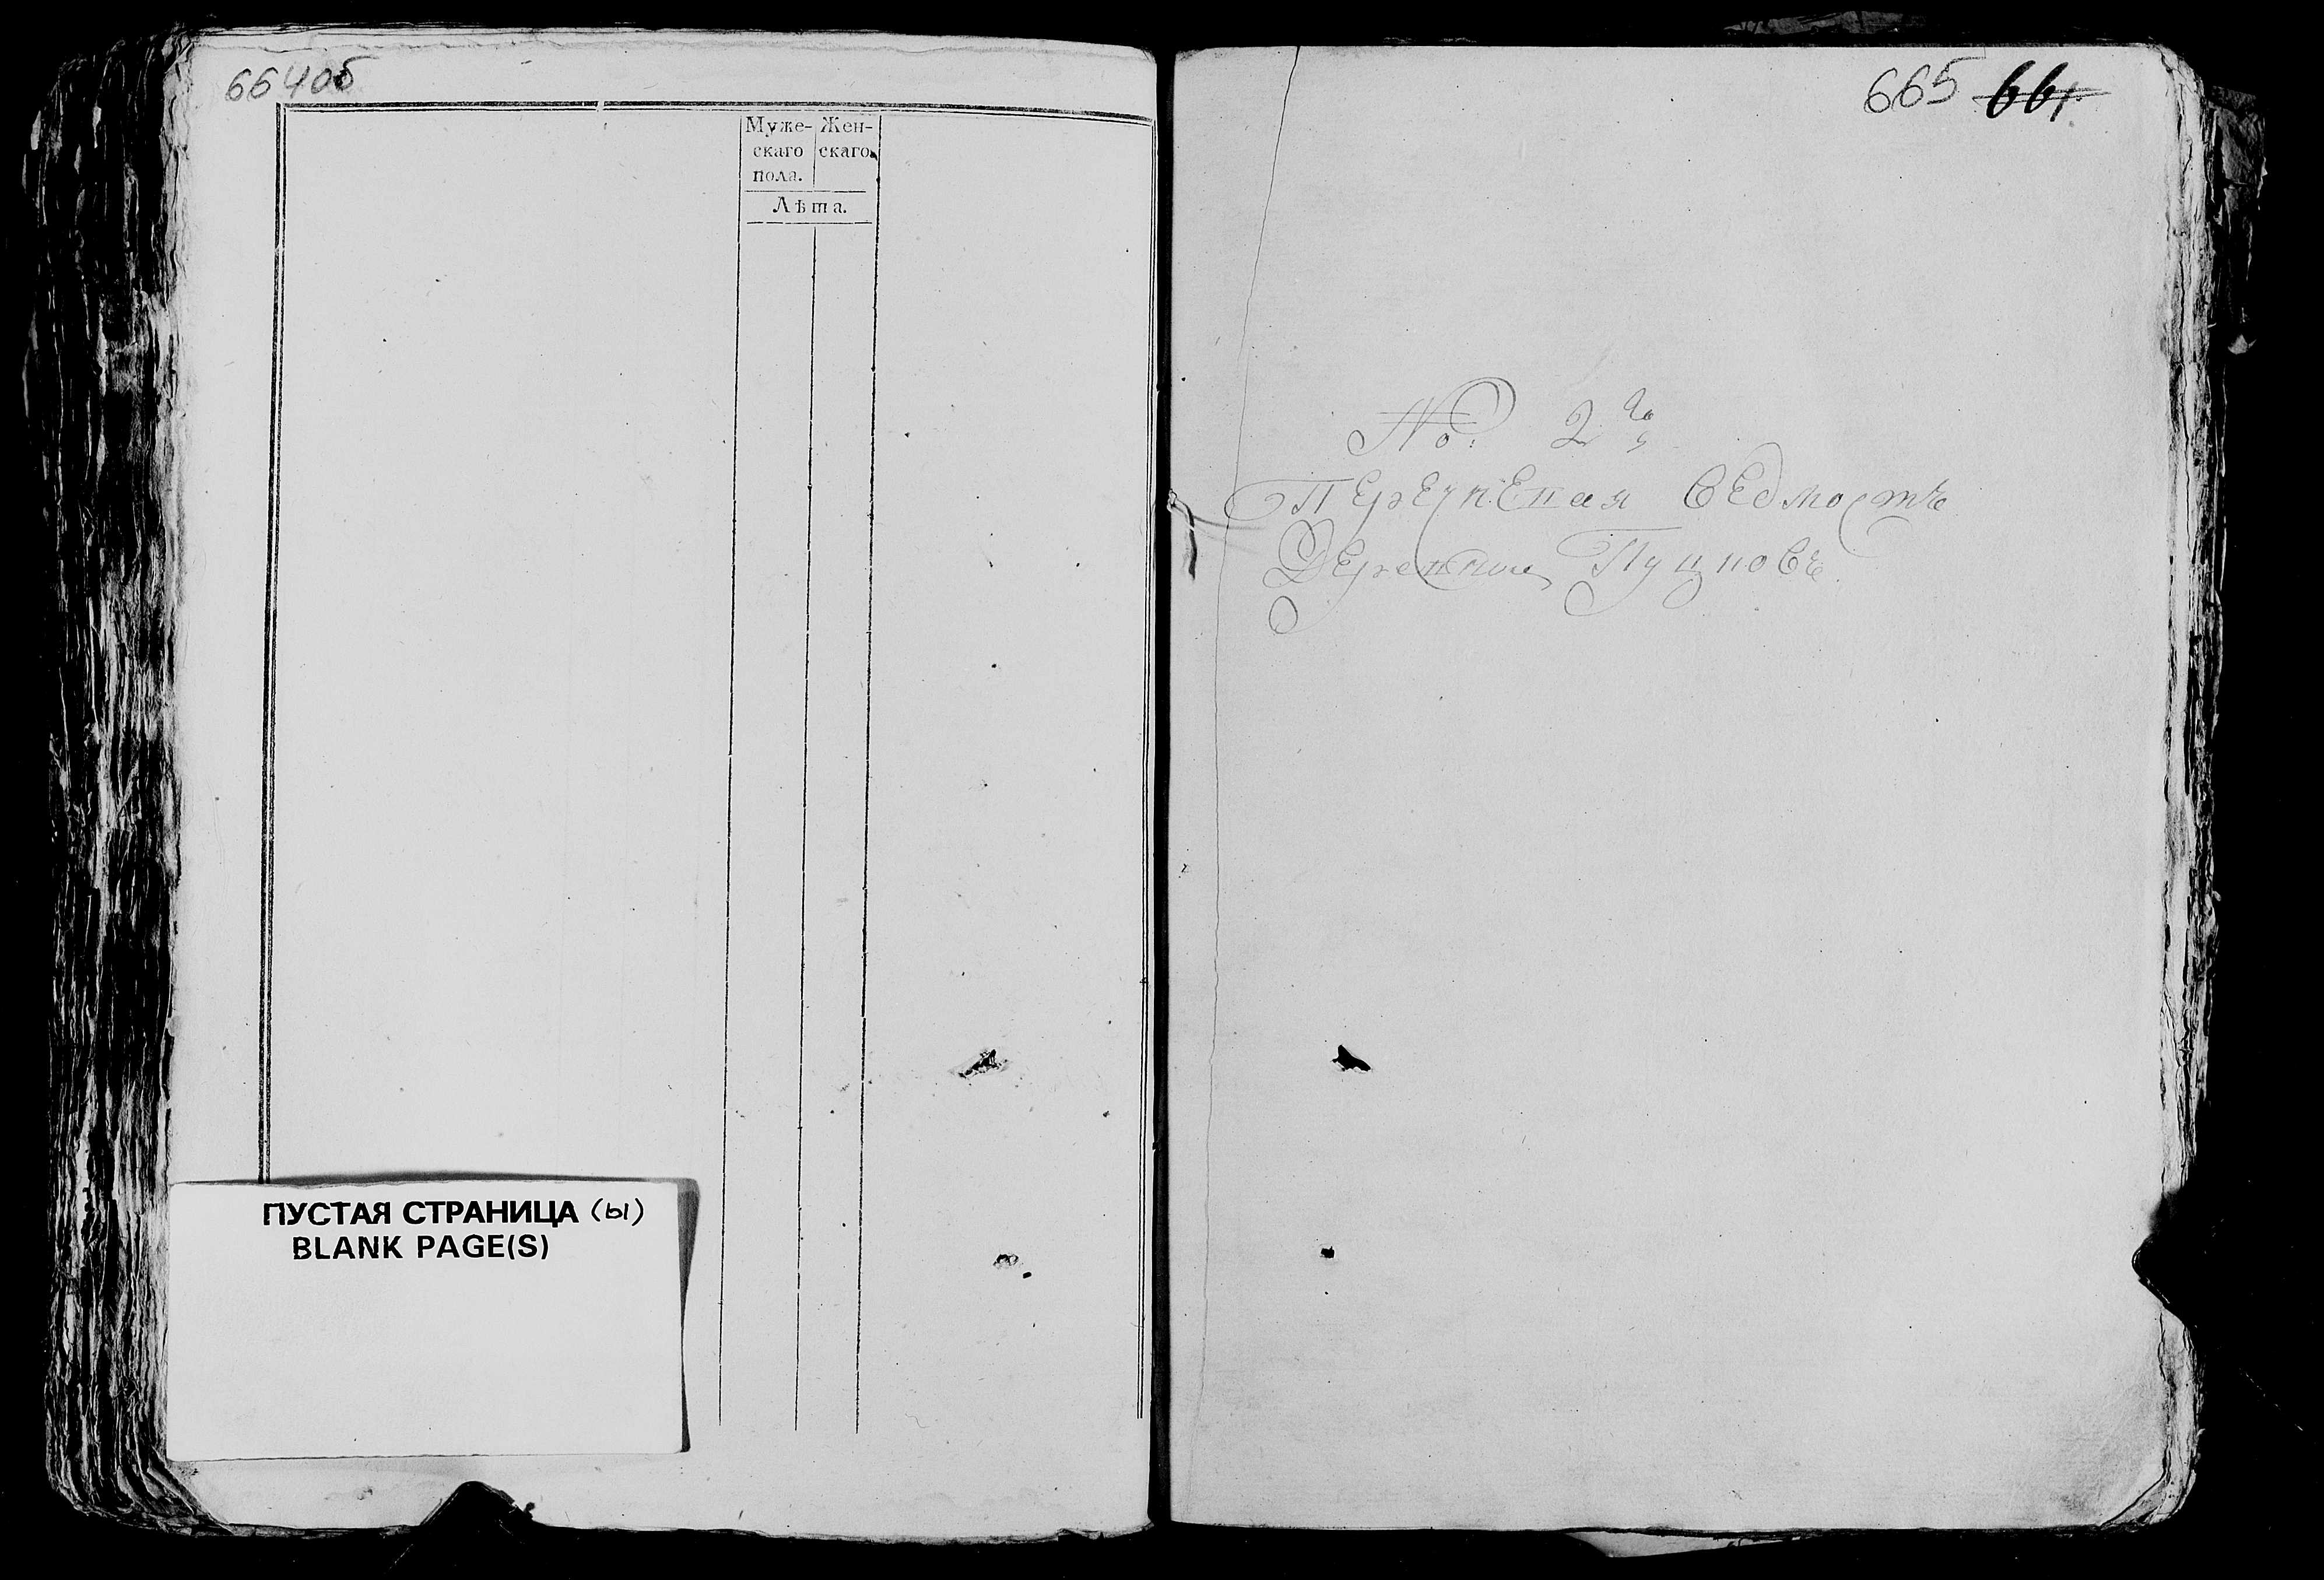 664об
Муже- Жен-
скаго скаго
пола.
Лѣта.
ПУСТАЯ СТРАНИЦА (ы)
BLANK PAGE(S)
665 661
No: 2й
Перечнепая ведмость
Деревни Пуцповъ